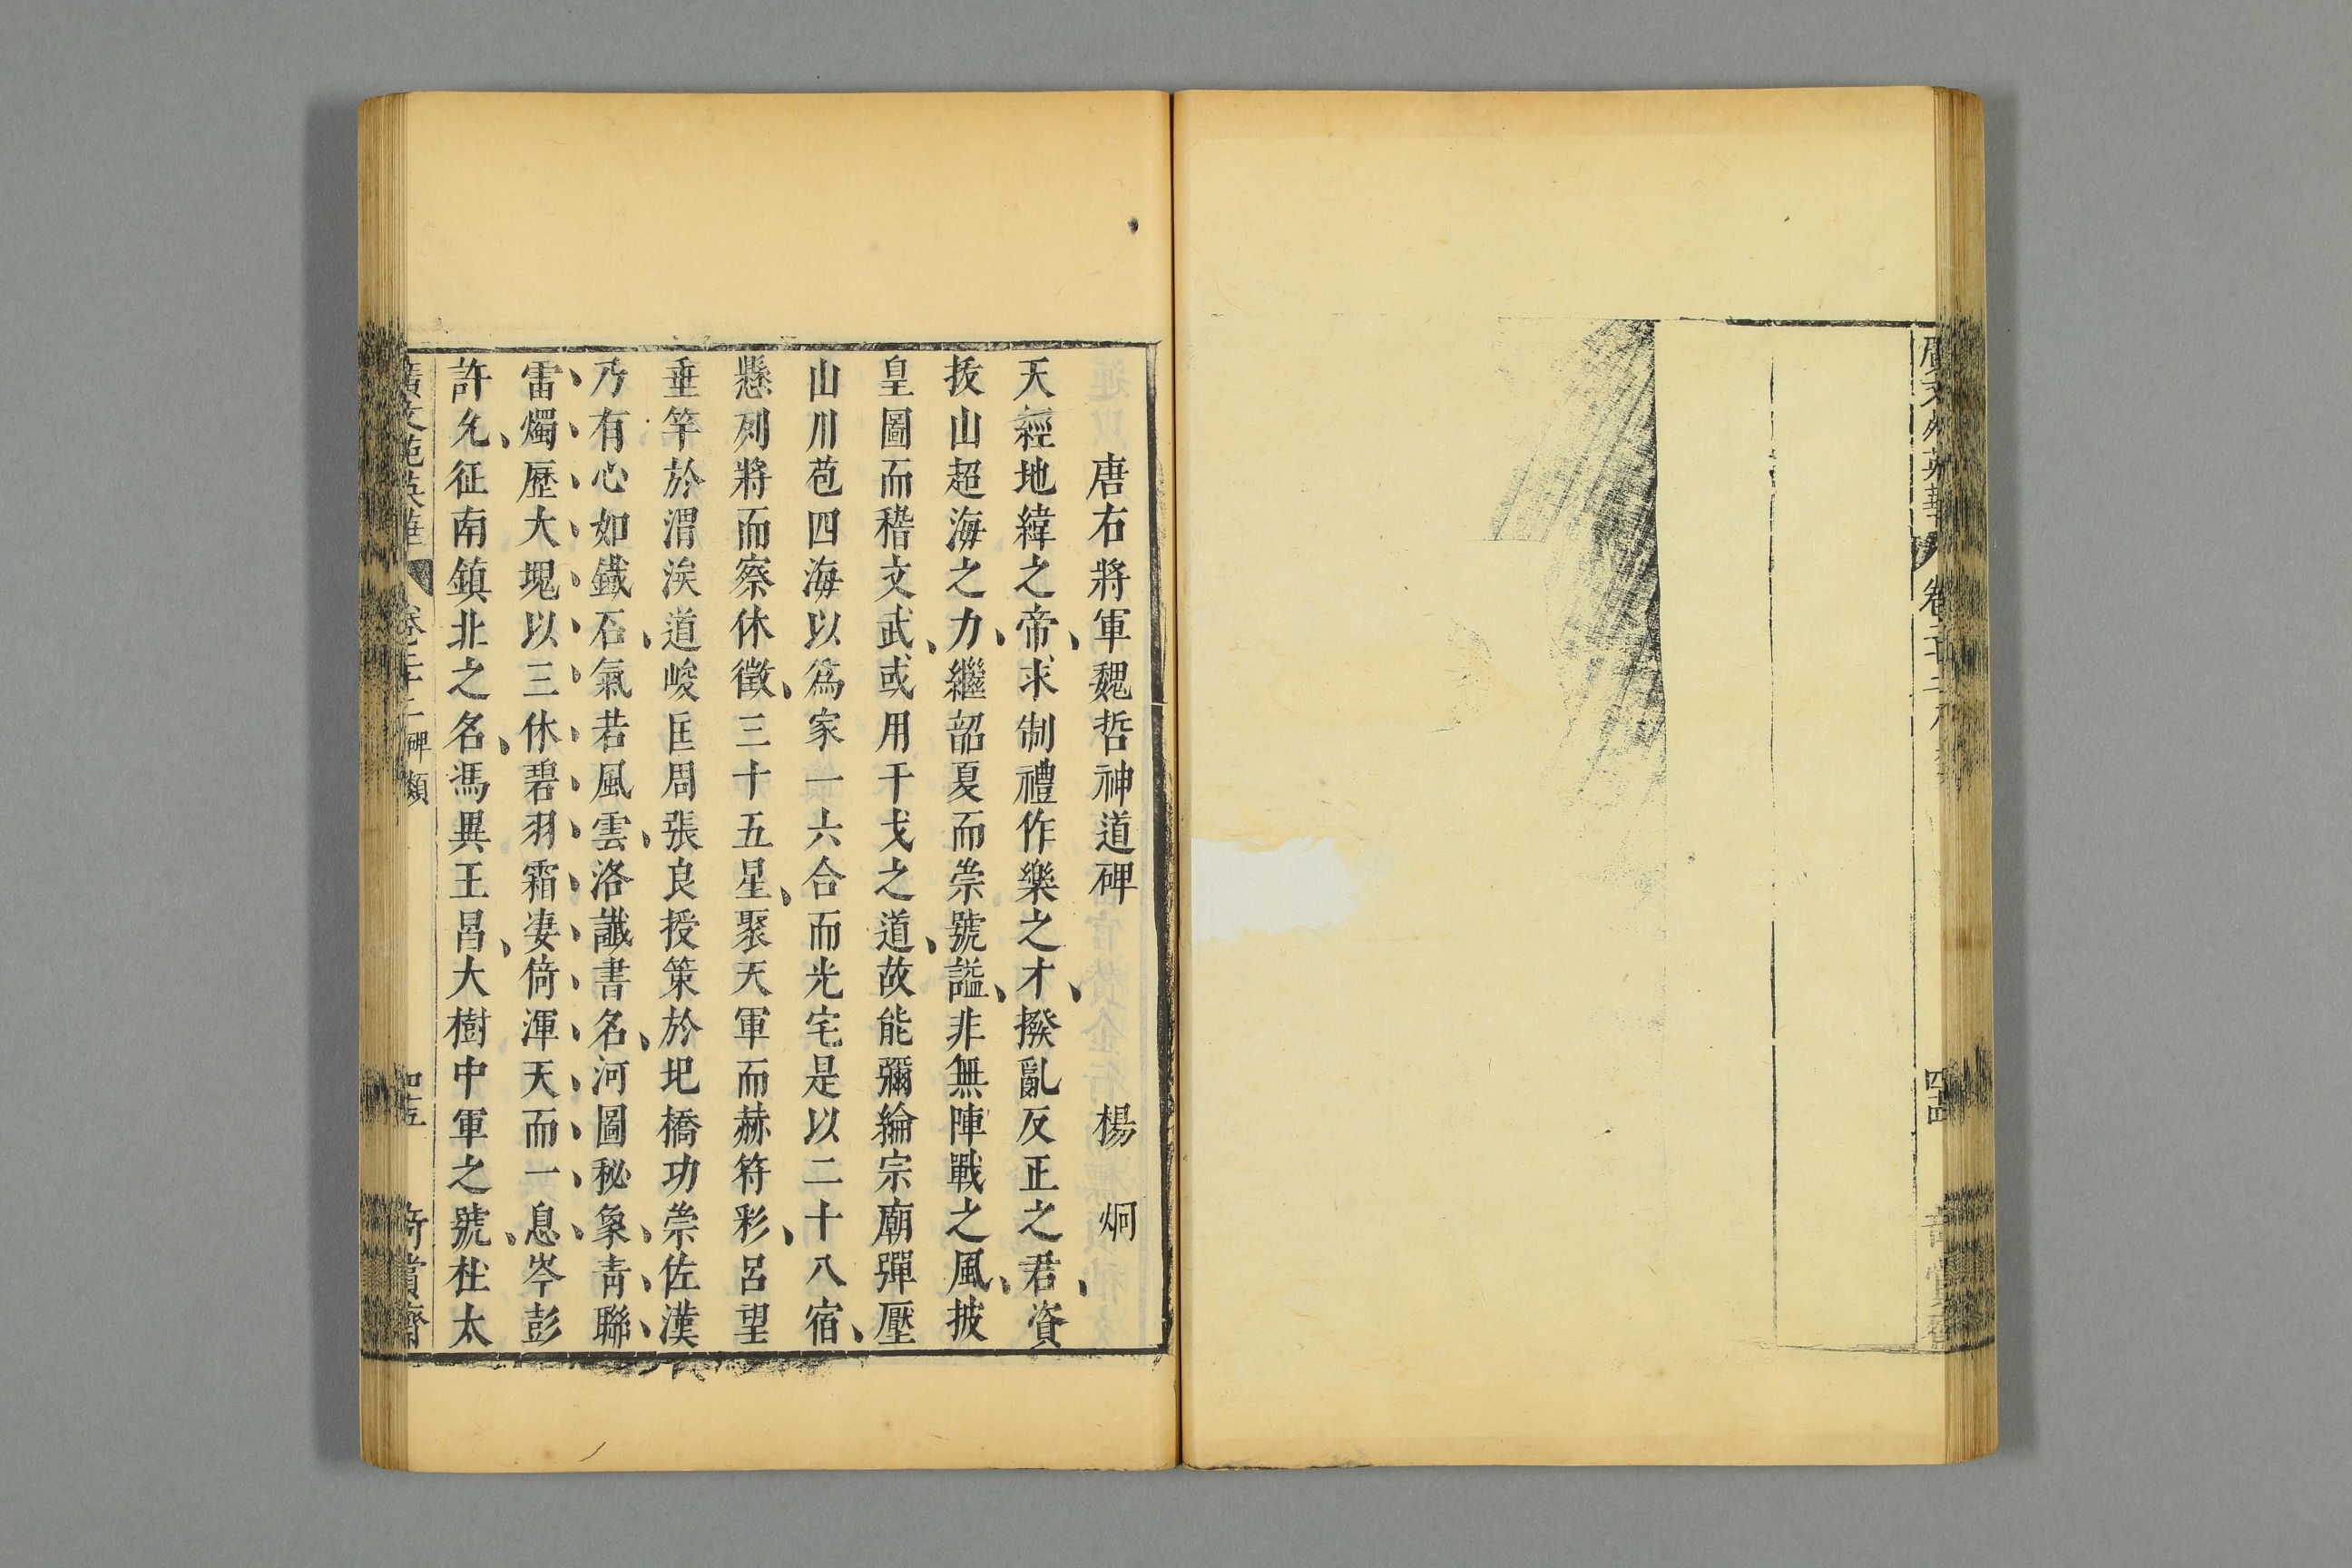 唐右將軍魏哲神道碑 楊炯
天經地緯之帝、求制禮作樂之才、撥亂反正之君、資
拔山超海之力、繼韶夏而崇號謚、非無陣戰之風、披
皇圖而稽文武、或用干戈之道、故能彌綸宗廟彈壓
山川苞四海以爲家一六合而光宅是以二十八宿、
懸列將而察休徵、三十五星、聚天軍而赫符彩、呂望
垂竿於渭涘道峻匡周張良授策於圯橋功崇佐漢
乃有心如鐵石、氣若風雲、洛讖書名、河圖秘象、青聯、
雷燭歷大塊以三休碧羽霜凄倚渾天而一息岑彭
許允、征南鎮北之名、馮異王昌、大樹中軍之號、杜太
廣文苑英華 卷二十二 碑類 四五 奇賞齋